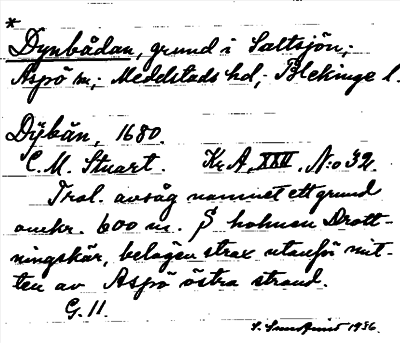 *
Dynbådan, grund i Saltsjön;
Aspö sn; Medelstads hd; Blekinge l.
Dÿbån, 1680.
C. M. Stuart. Kr. A, XXII, No 32.
Trol. avsåg namnet ett grund
omkr. 600 m. S holmen Drott-
ningskär, belägen strax utanför mit-
ten av Aspö östra strand.
G. 11.
1936.